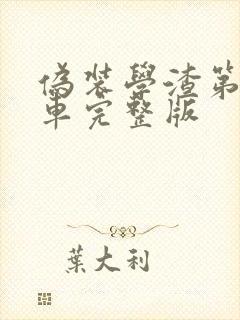 偽裝學渣第
車完整版
葉大利